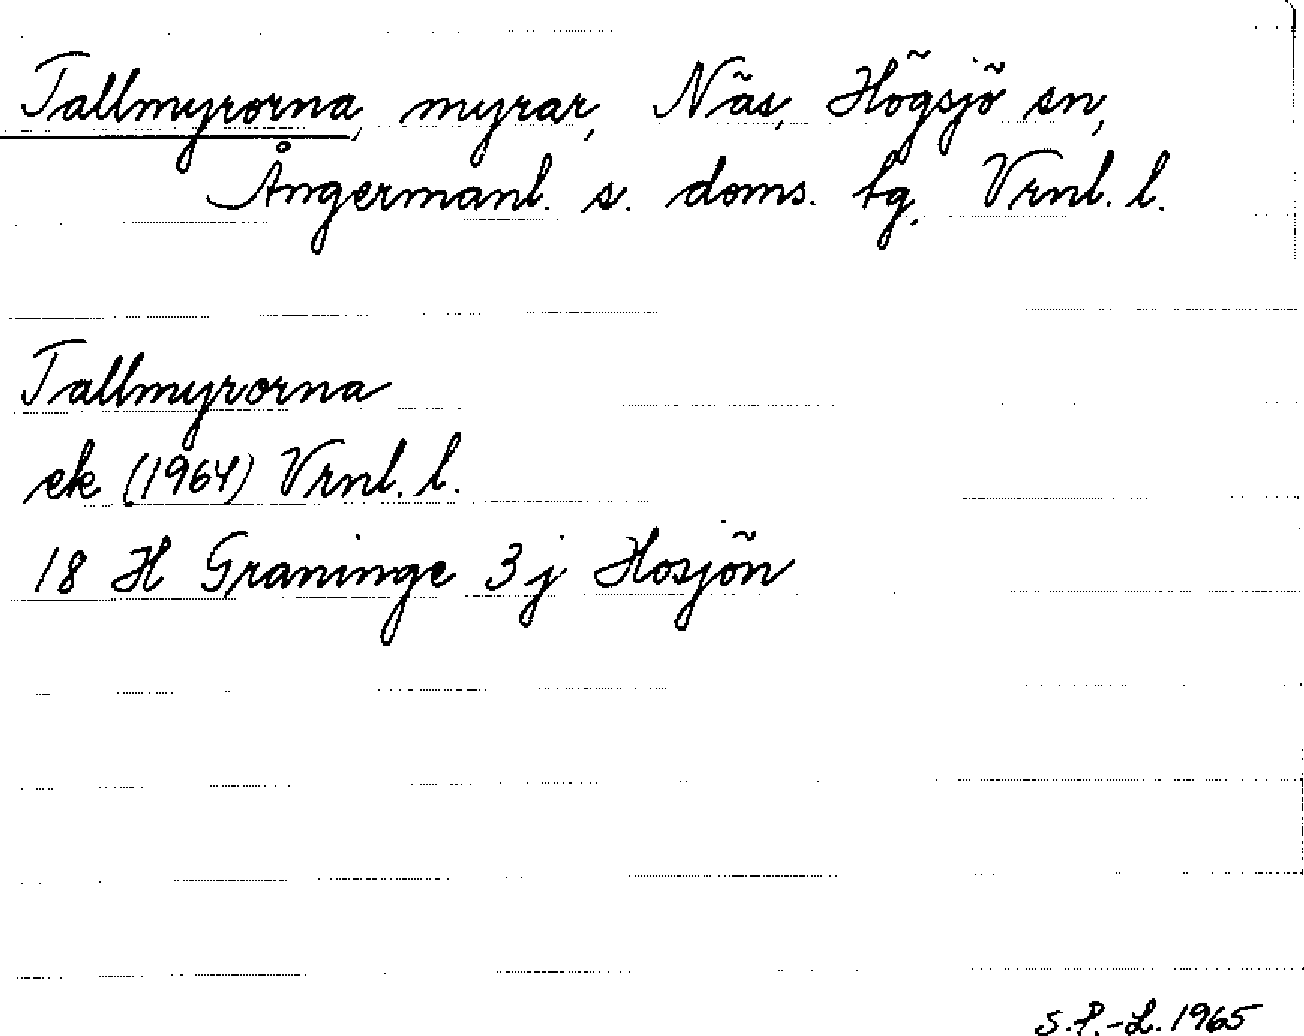 Tallmyrorna, myrar, Näs, Högsjö sn,
Ångermanl. s. doms. tg. Vrnl. l.
Tallmyrorna
ek (1964) Vrnl. l.
18 H Graninge 3 j Hosjön
S.P.-L. 1965